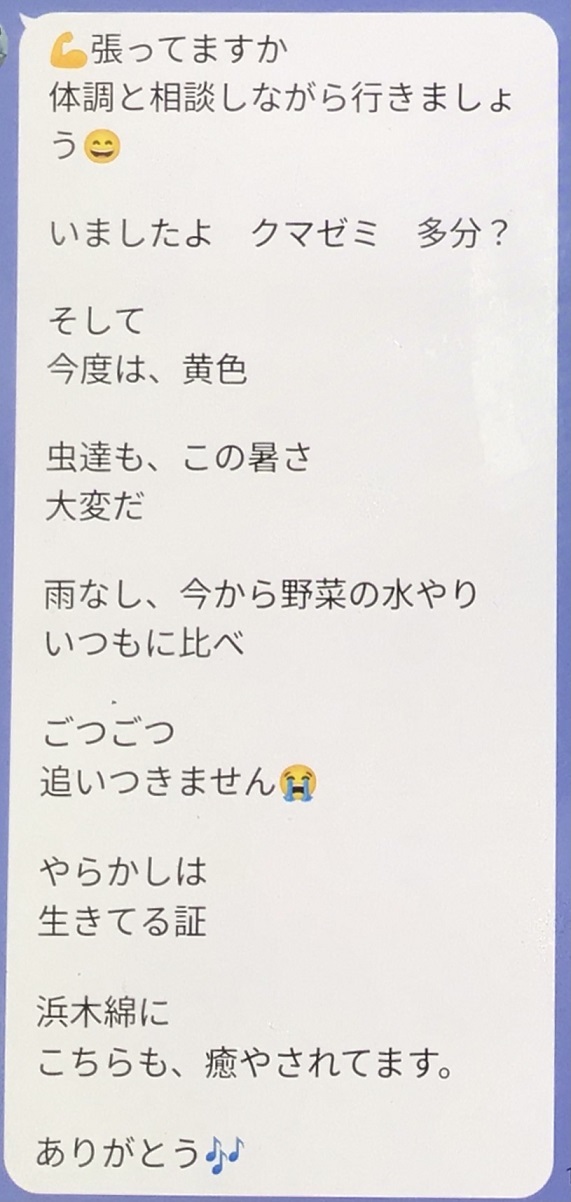 💪張ってますか
体調と相談しながら行きましょ
う😄
いましたよ　クマゼミ　多分？
そして
今度は、黄色
虫達も、この暑さ
大変だ
雨なし、今から野菜の水やり
いつもに比べ
ごつごつ
追いつきません😭
やらかしは
生きてる証
浜木綿に
こちらも、癒やされてます。
ありがとう🎶